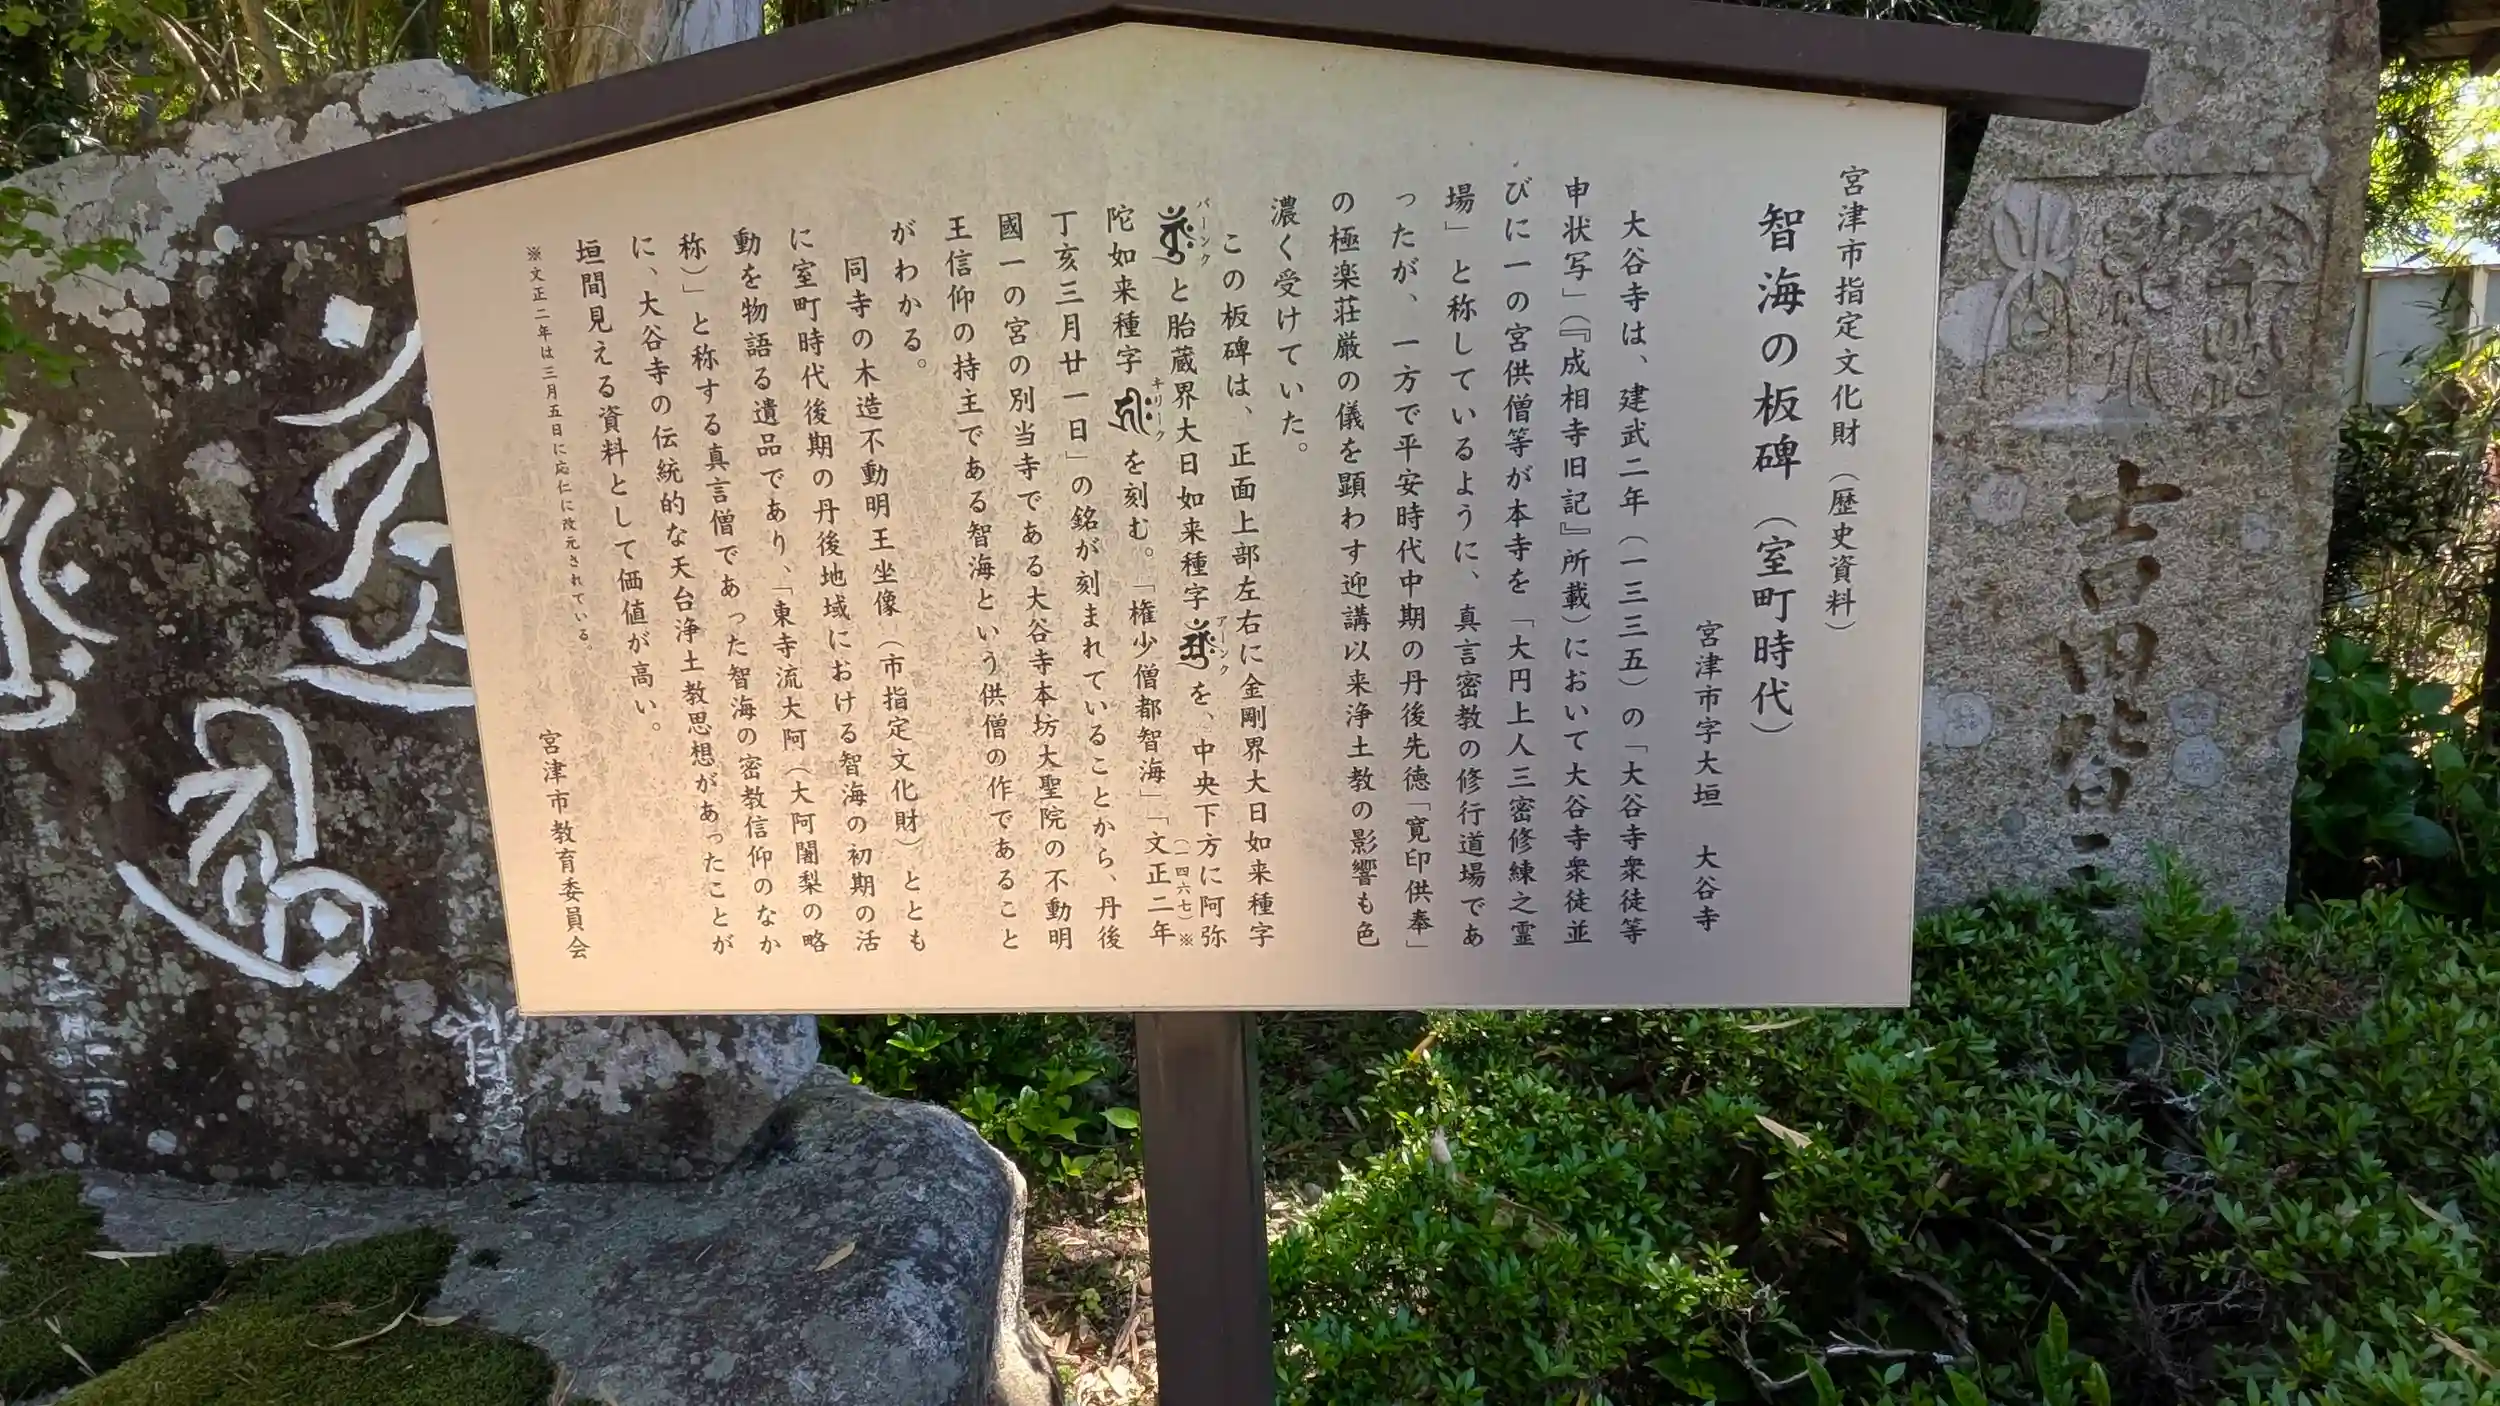 宮津市指定文化財（歴史資料）
智海の板碑（室町時代）
宮津市字大垣　大谷寺
大谷寺は、建武二年（一三三五）の「大谷寺衆徒等
申状写」（『成相寺旧記』所載）において大谷寺衆徒並
びに一の宮供僧等が本寺を「大円上人三密修練之霊
場」と称しているように、真言密教の修行道場であ
ったが、一方で平安時代中期の丹後先徳「寛印供奉」
の極楽荘厳の儀を顕わす迎講以来浄土教の影響も色
濃く受けていた。
この板碑は、正面上部左右に金剛界大日如来種字
バーンク
と胎蔵界大日如来種字
アーンク
を、中央下方に阿弥
陀如来種字
キリーク
を刻む。「権少僧都智海」「文正二年
（一四六七）※
丁亥三月廿一日」の銘が刻まれていることから、丹後
國一の宮の別当寺である大谷寺本坊大聖院の不動明
王信仰の持主である智海という供僧の作であること
がわかる。
同寺の木造不動明王坐像（市指定文化財）ととも
に室町時代後期の丹後地域における智海の初期の活
動を物語る遺品であり、「東寺流大阿（大阿闍梨の略
称）」と称する真言僧であった智海の密教信仰のなか
に、大谷寺の伝統的な天台浄土教思想があったことが
垣間見える資料として価値が高い。
※文正二年は三月五日に応仁に改元されている。
宮津市教育委員会